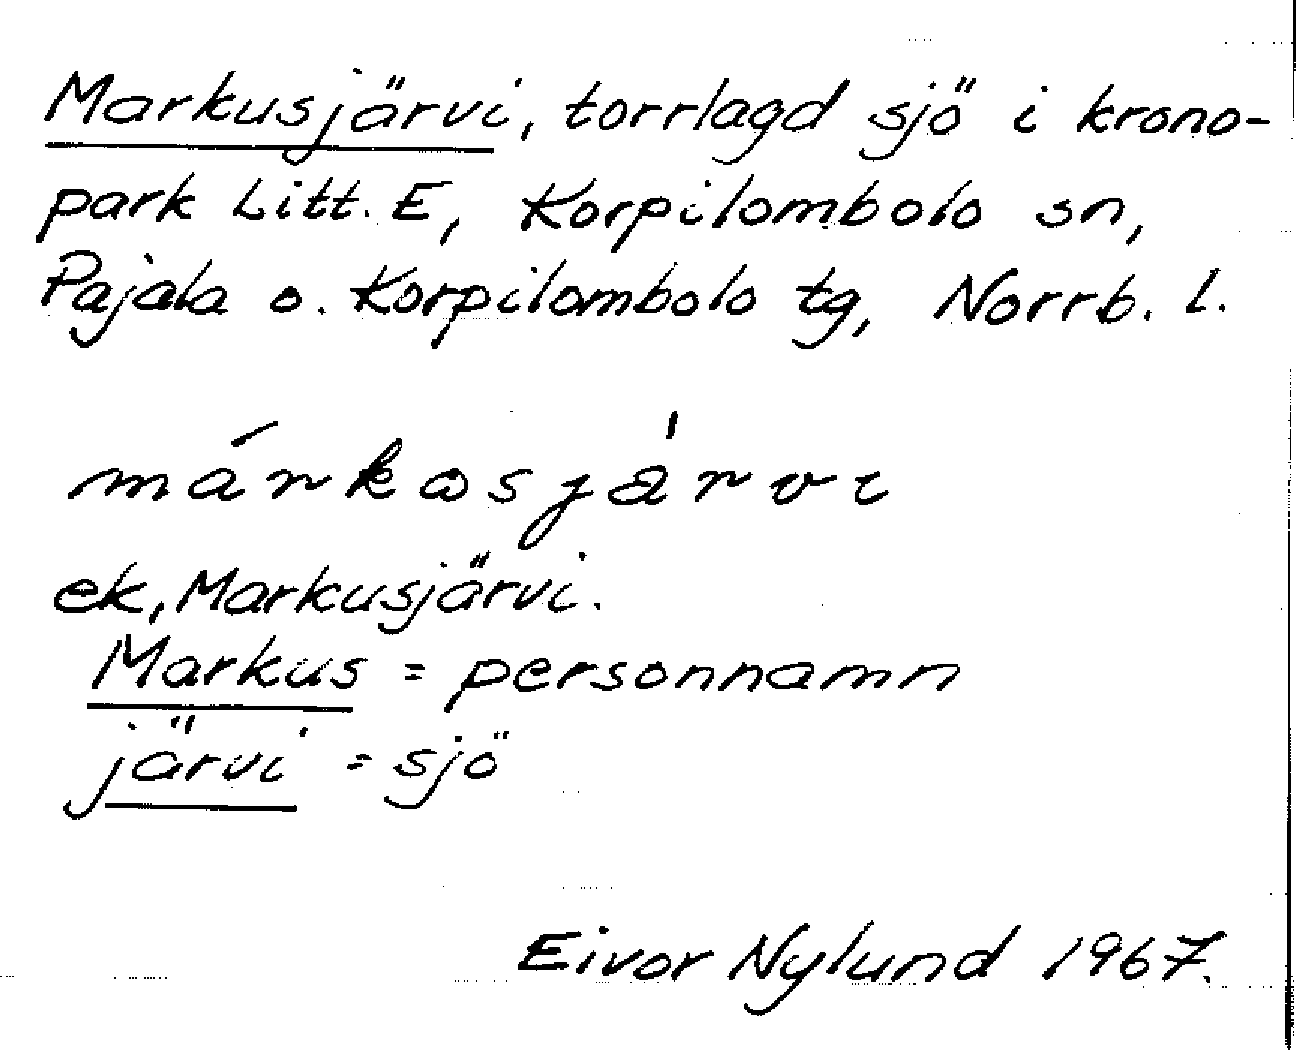 Markusjärvi, torrlagd sjö i krono-
park Litt. E, Korpilombolo sn,
Pajala o. Korpilombolo tg, Norrb. l.
márkωsjàrvι
ek, Markusjärvi.
Markus = personnamn
järvi = sjö
Eivor Nylund 1967.